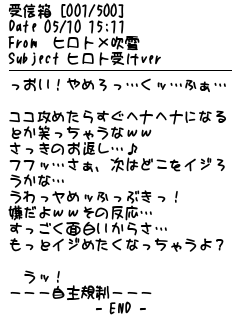 受信箱 [001/500]
Date 05/10 15:11
From ヒロト×吹雪
Subject ヒロト受けver
っおい!やめろっ…くッ…ふぁ…
ココ攻めたらすぐヘナヘナになる
とか笑っちゃうなww
さっきのお返し…♪
フフッ…さぁ、次はどこをイジろ
うかな…
うわっヤめッふっぶきっ!
嫌だよwwその反応…
すっごく面白いからさ…
もっとイジめたくなっちゃうよ?
うッ!
ーーー自主規制ーーー
- END -